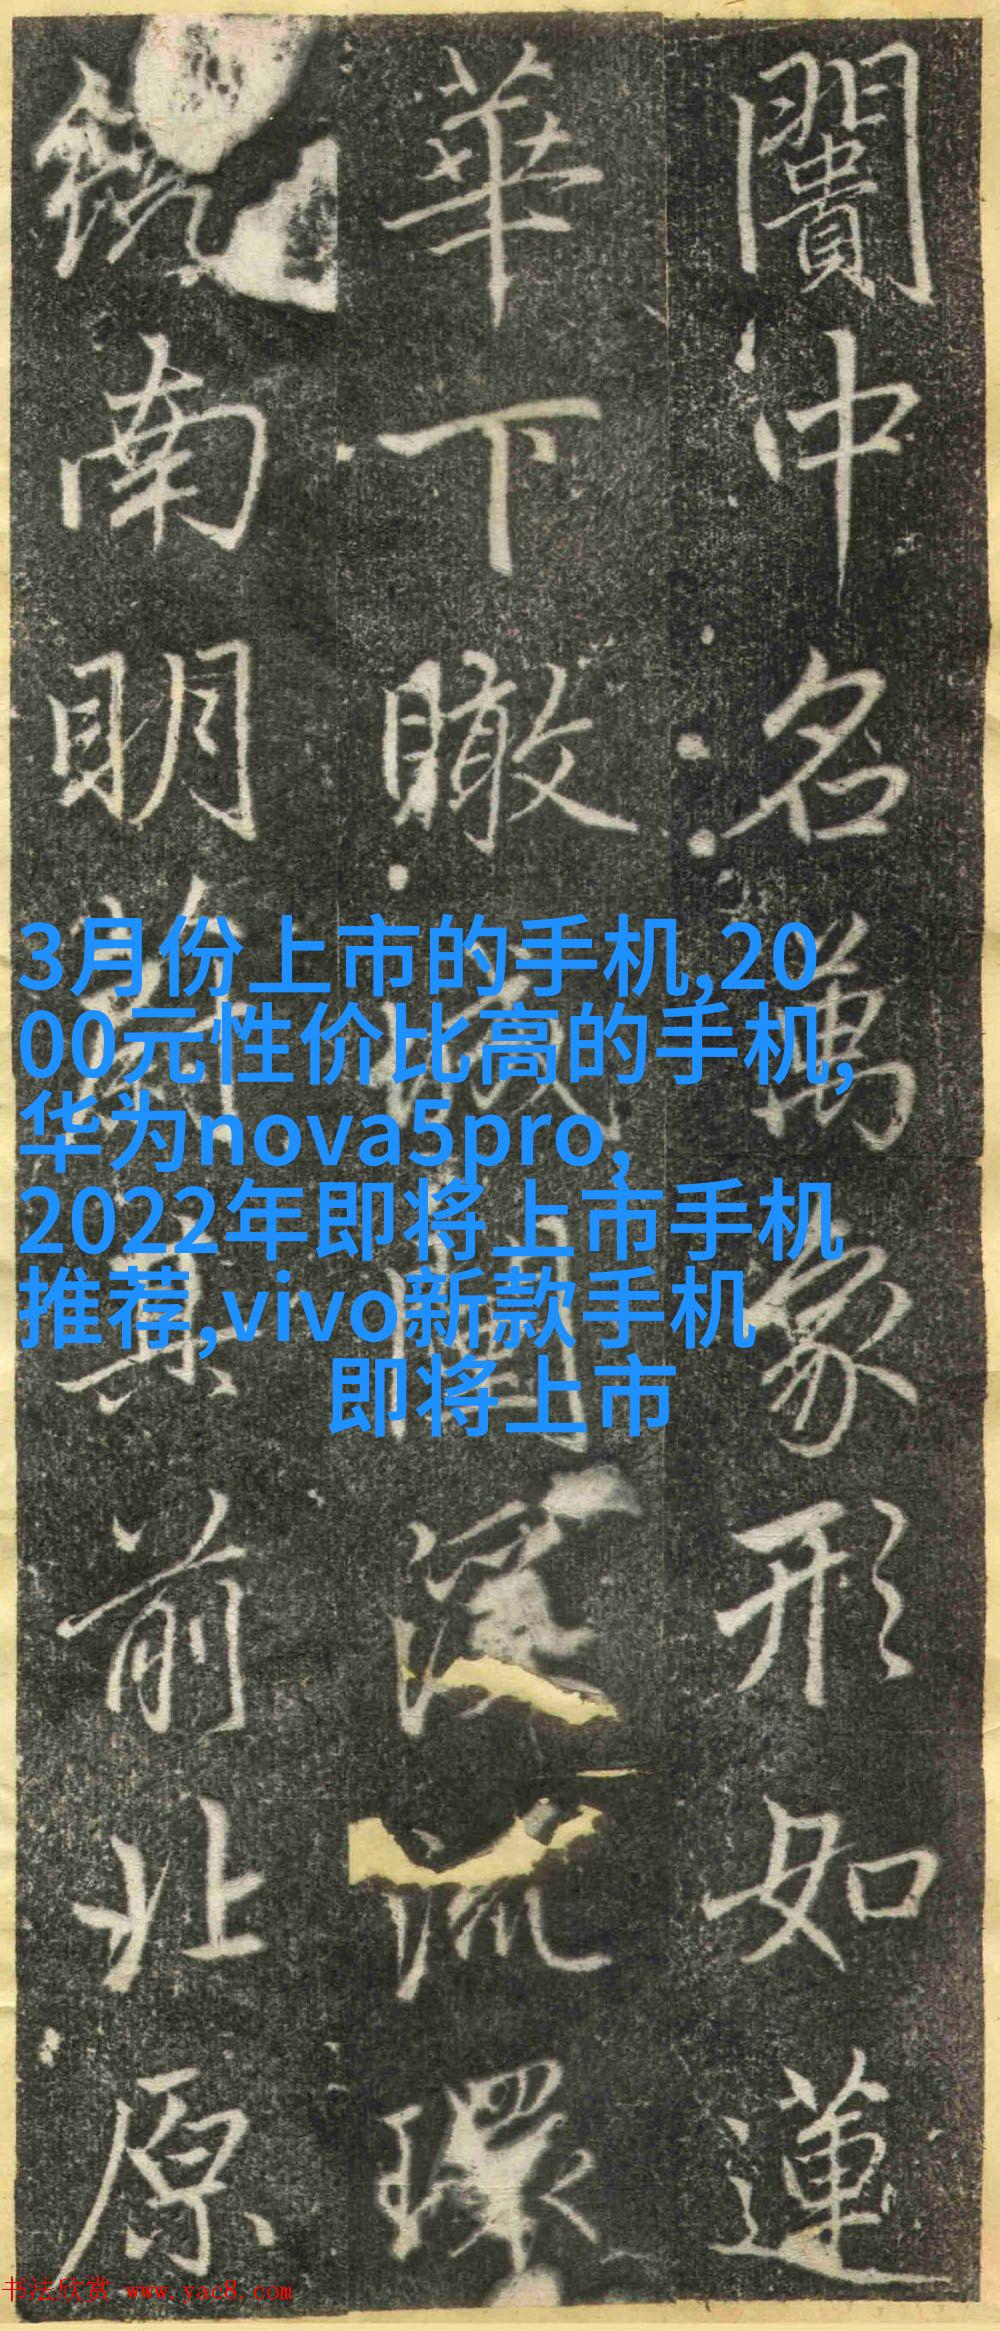 3月份上市的手机,20
00元性价比高的手机,
华为nova5pro,
2022年即将上市手机
推荐,vivo新款手机
即将上市
闠沖名萬象形如蓮
華下瞰 環
南明 其前北原
书法欣赏 www.yac8.com